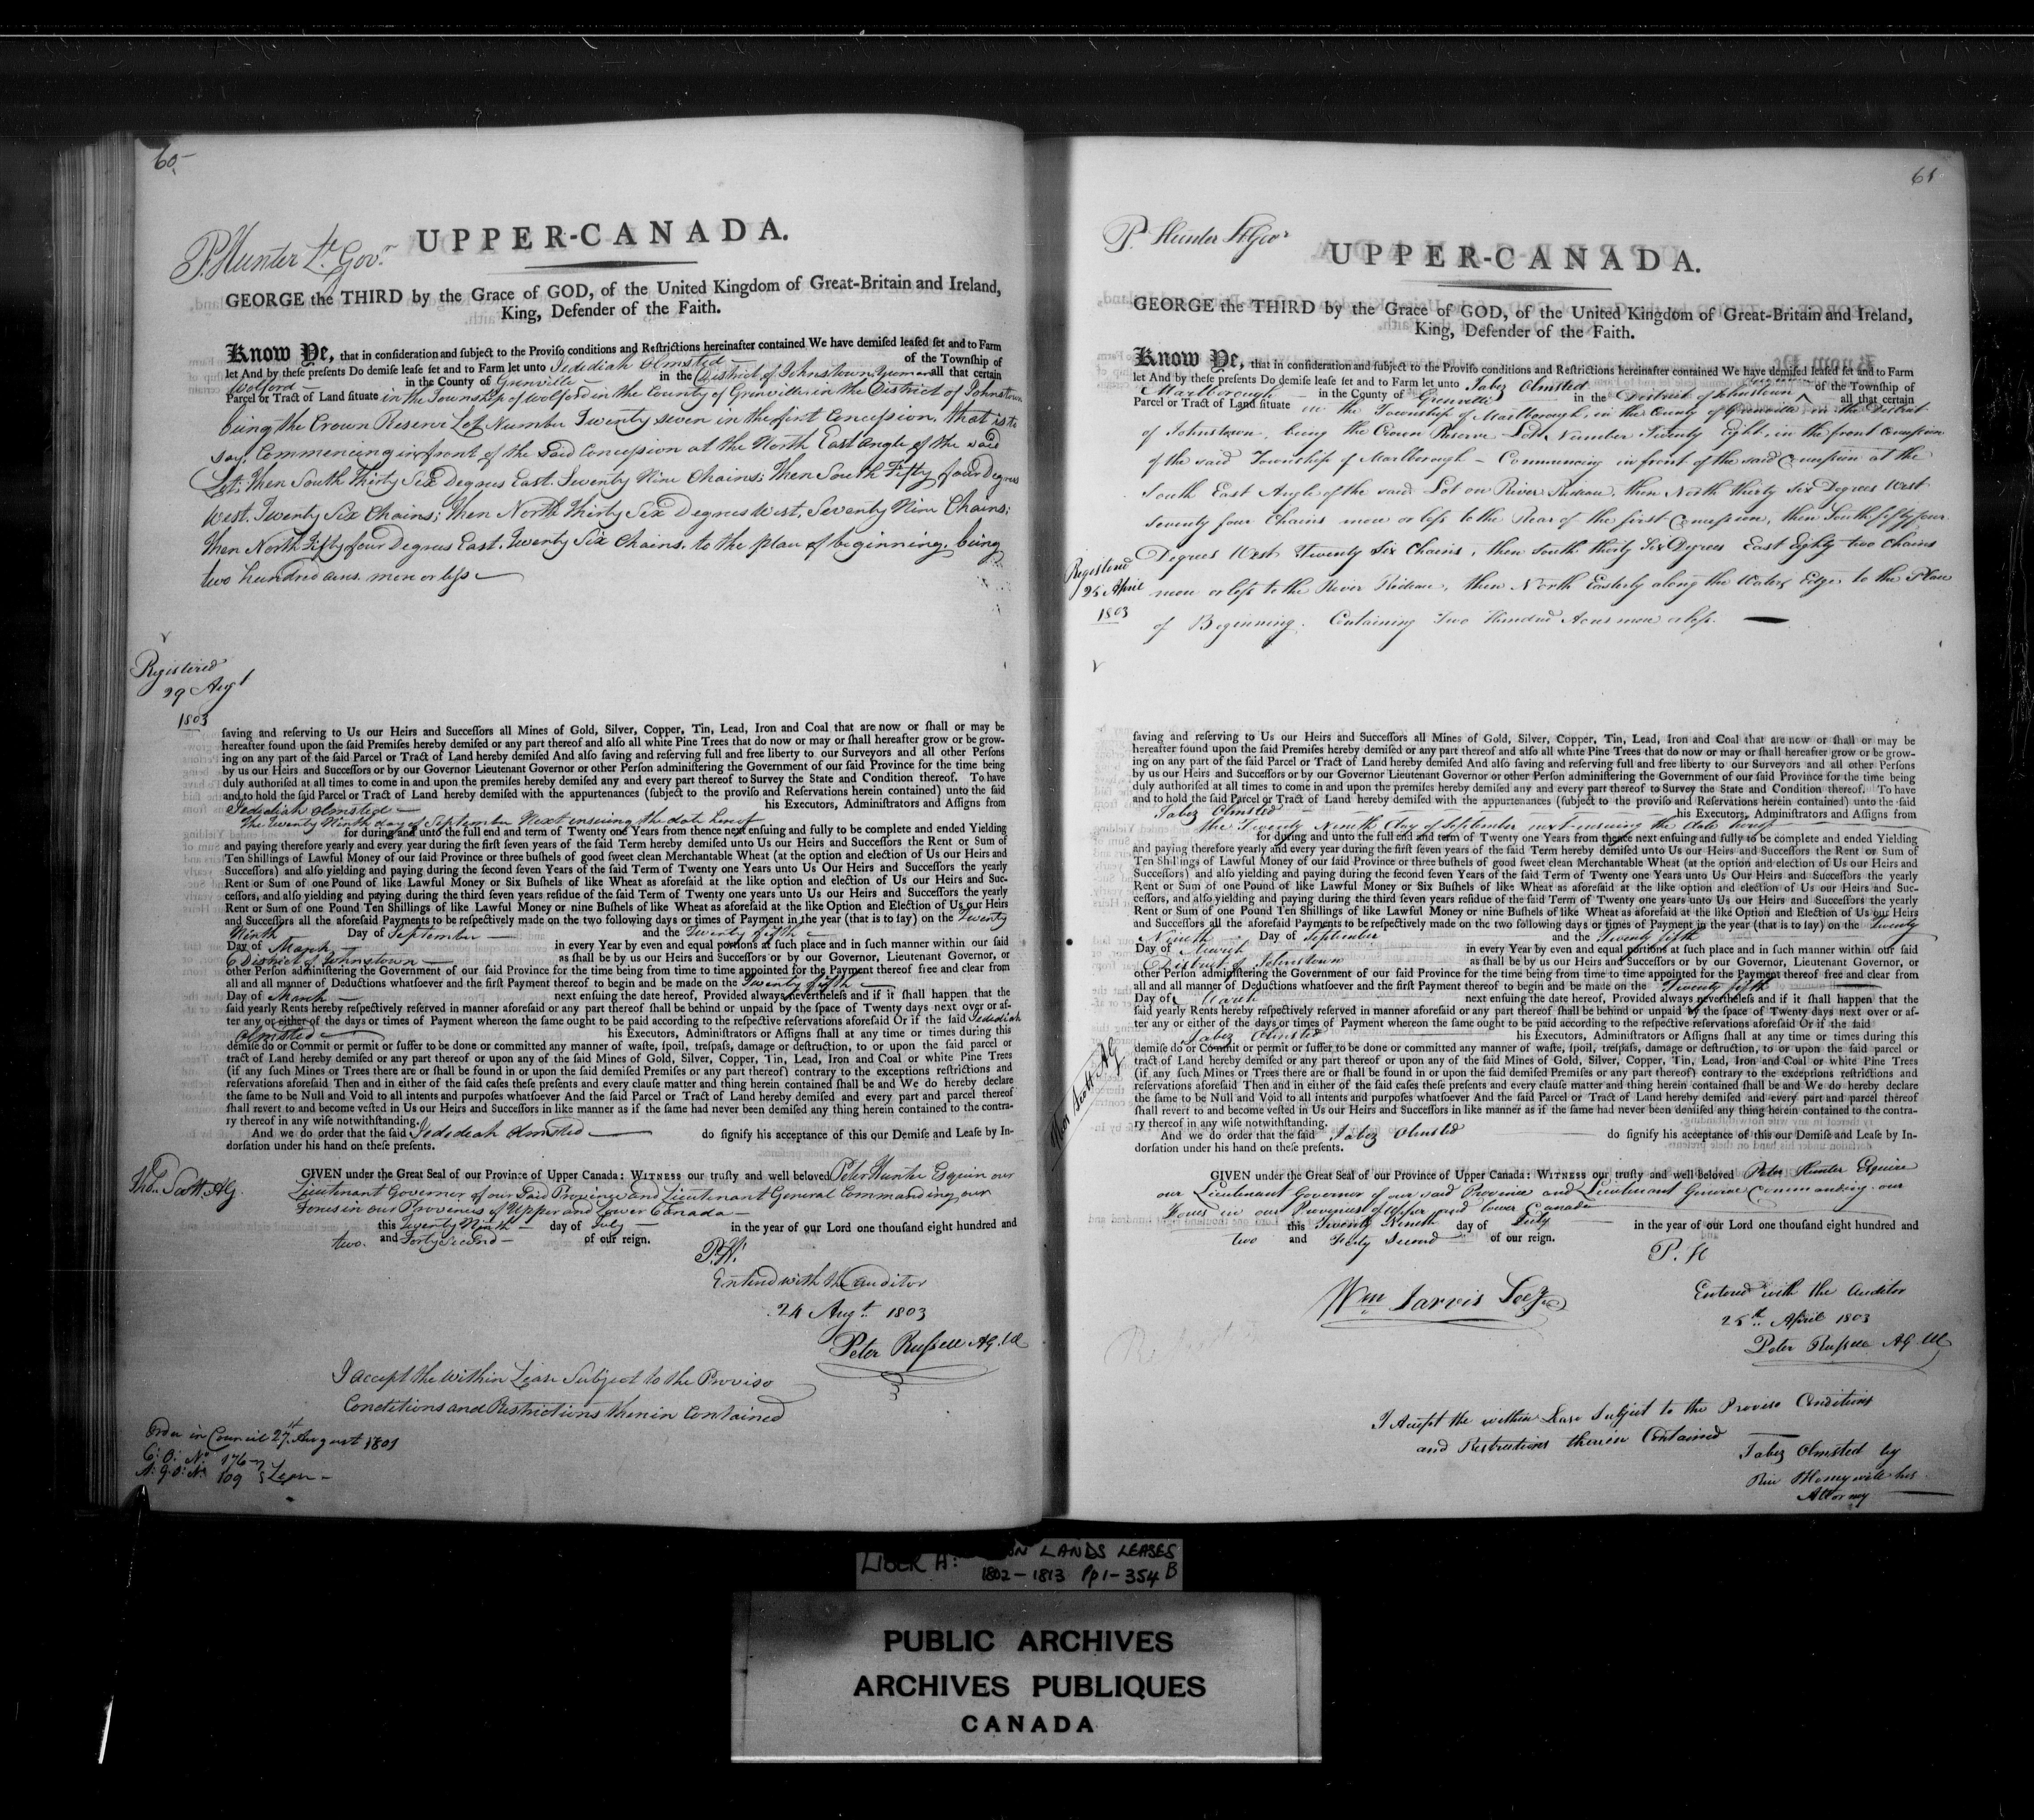 60.
P. Hunter Lt. Govr.
UPPER-CANADA.
GEORGE the THIRD by the Grace of GOD, of the United Kingdom of Great-Britain and Ireland,
King, Defender of the Faith.
Know Ye, that in consideration and subject to the Proviso conditions and Restrictions hereinafter contained We have demised leased set and to Farm
let And by these presents Do demise lease set and to Farm let unto Jedediah Olmsted of the Township of
Wolford in the County of Grenville in the District of Johnstown Yeoman all that certain
Parcel or Tract of Land situate in the Township of Wolford in the County of Grenville in the District of Johnstown
being the Crown Reserve Lot Number Twenty seven in the first Concession, that is to
say; Commencing in front of the said Concession at the North East angle of the said
Lot; Then South Thirty Six Degrees East. Seventy Nine Chains; Then South Fifty four Degrees
West. Twenty Six Chains; Then North Thirty Six Degrees West, Seventy Nine Chains;
Then North Fifty four Degrees East. Twenty Six Chains. to the place of beginning. being
two hundred acres more or less
Registered
29 Augt
1803
saving and reserving to Us our Heirs and Successors all Mines of Gold, Silver, Copper, Tin, Lead, Iron and Coal that are now or shall or may be
hereafter found upon the said Premises hereby demised or any part thereof and also all white Pine Trees that do now or may or shall hereafter grow or be grow-
ing on any part of the said Parcel or Tract of Land hereby demised And also saving and reserving full and free liberty to our Surveyors and all other Persons
by us our Heirs and Successors or by our Governor Lieutenant Governor or other Person administering the Government of our said Province for the time being
duly authorised at all times to come in and upon the premises hereby demised any and every part thereof to Survey the State and Condition thereof. To have
and to hold the said Parcel or Tract of Land hereby demised with the appurtenances (subject to the proviso and Reservations herein contained) unto the said
Jedediah Olmsted his Executors, Administrators and Assigns from
The Twenty Ninth day of September Next ensuing the date hereof
for during and unto the full end and term of Twenty one Years from thence next ensuing and fully to be complete and ended Yielding
and paying therefore yearly and every year during the first seven years of the said Term hereby demised unto Us our Heirs and Successors the Rent or Sum of
Ten Shillings of Lawful Money of our said Province or three bushels of good sweet clean Merchantable Wheat (at the option and election of Us our Heirs and
Successors) and also yielding and paying during the second seven Years of the said Term of Twenty one Years unto Us Our Heirs and Successors the yearly
Rent or Sum of one Pound of like Lawful Money or Six Bushels of like Wheat as aforesaid at the like option and election of Us our Heirs and Suc-
cessors, and also yielding and paying during the third seven years residue of the said Term of Twenty one years unto Us our Heirs and Successors the yearly
Rent or Sum of one Pound Ten Shillings of like Lawful Money or nine Bushels of like Wheat as aforesaid at the like Option and Election of Us our Heirs
and Successors all the aforesaid Payments to be respectively made on the two following days or times of Payment in the year (that is to say) on the Twenty
Ninth Day of September and the Twenty fifth
Day of March in every Year by even and equal portions at such place and in such manner within our said
District of Johnstown as shall be by us our Heirs and Successors or by our Governor, Lieutenant Governor, or
other Person administering the Government of our said Province for the time being from time to time appointed for the Payment thereof free and clear from
all and all manner of Deductions whatsoever and the first Payment thereof to begin and be made on the Twenty fifth
Day of March next ensuing the date hereof, Provided always nevertheless and if it shall happen that the
said yearly Rents hereby respectively reserved in manner aforesaid or any part thereof shall be behind or unpaid by the space of Twenty days next over or af-
ter any or either of the days or times of Payment whereon the same ought to be paid according to the respective reservations aforesaid Or if the said Jedediah
Olmsted his Executors, Administrators or Assigns shall at any time or times during this
demise do or Commit or permit or suffer to be done or committed any manner of waste, spoil, trespass, damage or destruction, to or upon the said parcel or
tract of Land hereby demised or any part thereof or upon any of the said Mines of Gold, Silver, Copper, Tin, Lead, Iron and Coal or white Pine Trees
(if any such Mines or Trees there are or shall be found in or upon the said demised Premises or any part thereof) contrary to the exceptions restrictions and
reservations aforesaid Then and in either of the said cases these presents and every clause matter and thing herein contained shall be and We do hereby declare
the same to be Null and Void to all intents and purposes whatsoever And the said Parcel or Tract of Land hereby demised and every part and parcel thereof
shall revert to and become vested in Us our Heirs and Successors in like manner as if the same had never been demised any thing herein contained to the contra-
ry thereof in any wise notwithstanding.
And we do order that the said Jedediah Olmsted do signify his acceptance of this our Demise and Lease by In-
dorsation under his hand on these presents.
Thos. Scott AG.
GIVEN under the Great Seal of our Province of Upper Canada: WITNESS our trusty and well beloved Peter Hunter Esquire our
Lieutenant Governor of our Said Province and Lieutenant General Commanding our
Forces in our Provinces of Upper and Lower Canada
this Twenty Ninth day of July in the year of our Lord one thousand eight hundred and
two. and Forty Second of our reign.
P.H.
Entered with the Auditor
24 Augt. 1803
Peter Russell AG. UC
I accept the within Lease Subject to the Proviso
Conditions and Restrictions therein Contained
Order in Council 27 August 1801
C: O: No. 176
A: G: O: No. 109 Lease
61
P. Hunter Lt Govr
UPPER-CANADA.
GEORGE the THIRD by the Grace of GOD, of the United Kingdom of Great-Britain and Ireland,
King, Defender of the Faith.
Know Ye, that in consideration and subject to the Proviso conditions and Restrictions hereinafter contained We have demised leased set and to Farm
let And by these presents Do demise lease set and to Farm let unto Jabez Olmsted of the Township of
Marlborough in the County of Grenville in the District of Johnstown all that certain
Parcel or Tract of Land situate in the Township of Marlborough, in the County of Grenville in the District
of Johnstown, being the Crown Reserve Lot Number Twenty Eight, in the front Concession
of the said Township of Marlborough - Commencing in front of the said Concession at the
South East Angle of the said Lot on River Rideau, then North thirty Six Degrees West
Seventy four Chains more or less to the Rear of the first Concession, then South fifty four
Degrees West Twenty Six Chains, then South thirty Six Degrees East Eighty two Chains
more or less to the River Rideau, then North Easterly along the Waters Edge to the Place
of Beginning. Containing Two Hundred Acres more or less.
Registered
25 April
1803
saving and reserving to Us our Heirs and Successors all Mines of Gold, Silver, Copper, Tin, Lead, Iron and Coal that are now or shall or may be
hereafter found upon the said Premises hereby demised or any part thereof and also all white Pine Trees that do now or may or shall hereafter grow or be grow-
ing on any part of the said Parcel or Tract of Land hereby demised And also saving and reserving full and free liberty to our Surveyors and all other Persons
by us our Heirs and Successors or by our Governor Lieutenant Governor or other Person administering the Government of our said Province for the time being
duly authorised at all times to come in and upon the premises hereby demised any and every part thereof to Survey the State and Condition thereof. To have
and to hold the said Parcel or Tract of Land hereby demised with the appurtenances (subject to the proviso and Reservations herein contained) unto the said
Jabez Olmsted his Executors, Administrators and Assigns from
the Twenty Ninth day of September next ensuing the date hereof
for during and unto the full end and term of Twenty one Years from thence next ensuing and fully to be complete and ended Yielding
and paying therefore yearly and every year during the first seven years of the said Term hereby demised unto Us our Heirs and Successors the Rent or Sum of
Ten Shillings of Lawful Money of our said Province or three bushels of good sweet clean Merchantable Wheat (at the option and election of Us our Heirs and
Successors) and also yielding and paying during the second seven Years of the said Term of Twenty one Years unto Us Our Heirs and Successors the yearly
Rent or Sum of one Pound of like Lawful Money or Six Bushels of like Wheat as aforesaid at the like option and election of Us our Heirs and Suc-
cessors, and also yielding and paying during the third seven years residue of the said Term of Twenty one years unto Us our Heirs and Successors the yearly
Rent or Sum of one Pound Ten Shillings of like Lawful Money or nine Bushels of like Wheat as aforesaid at the like Option and Election of Us our Heirs
and Successors all the aforesaid Payments to be respectively made on the two following days or times of Payment in the year (that is to say) on the Twenty
Nineth Day of September and the Twenty fifth
Day of March in every Year by even and equal portions at such place and in such manner within our said
District of Johnstown as shall be by us our Heirs and Successors or by our Governor, Lieutenant Governor, or
other Person administering the Government of our said Province for the time being from time to time appointed for the Payment thereof free and clear from
all and all manner of Deductions whatsoever and the first Payment thereof to begin and be made on the Twenty fifth
Day of March next ensuing the date hereof, Provided always nevertheless and if it shall happen that the
said yearly Rents hereby respectively reserved in manner aforesaid or any part thereof shall be behind or unpaid by the space of Twenty days next over or af-
ter any or either of the days or times of Payment whereon the same ought to be paid according to the respective reservations aforesaid Or if the said
Jabez Olmsted his Executors, Administrators or Assigns shall at any time or times during this
demise do or Commit or permit or suffer to be done or committed any manner of waste, spoil, trespass, damage or destruction, to or upon the said parcel or
tract of Land hereby demised or any part thereof or upon any of the said Mines of Gold, Silver, Copper, Tin, Lead, Iron and Coal or white Pine Trees
(if any such Mines or Trees there are or shall be found in or upon the said demised Premises or any part thereof) contrary to the exceptions restrictions and
reservations aforesaid Then and in either of the said cases these presents and every clause matter and thing herein contained shall be and We do hereby declare
the same to be Null and Void to all intents and purposes whatsoever And the said Parcel or Tract of Land hereby demised and every part and parcel thereof
shall revert to and become vested in Us our Heirs and Successors in like manner as if the same had never been demised any thing herein contained to the contra-
ry thereof in any wise notwithstanding.
Thos Scott AG
And we do order that the said Jabez Olmsted do signify his acceptance of this our Demise and Lease by In-
dorsation under his hand on these presents.
GIVEN under the Great Seal of our Province of Upper Canada: WITNESS our trusty and well beloved Peter Hunter Esquire
our Lieutenant Governor of our said Province and Lieutenant General Commanding our
Forces in our Provinces of Upper and Lower Canada
this Twenty Nineth day of July in the year of our Lord one thousand eight hundred and
two and Forty Second of our reign.
P. H
Wm Jarvis Secy
Entered with the Auditor
25th April 1803
Peter Russell AG. UC
I Accept the within Lease Subject to the Proviso Conditions
and Restrictions therein Contained
Jabez Olmsted by
his
Attorney
LIBER A: LANDS LEASES
1802-1813 Pp 1-354 B
PUBLIC ARCHIVES
ARCHIVES PUBLIQUES
CANADA